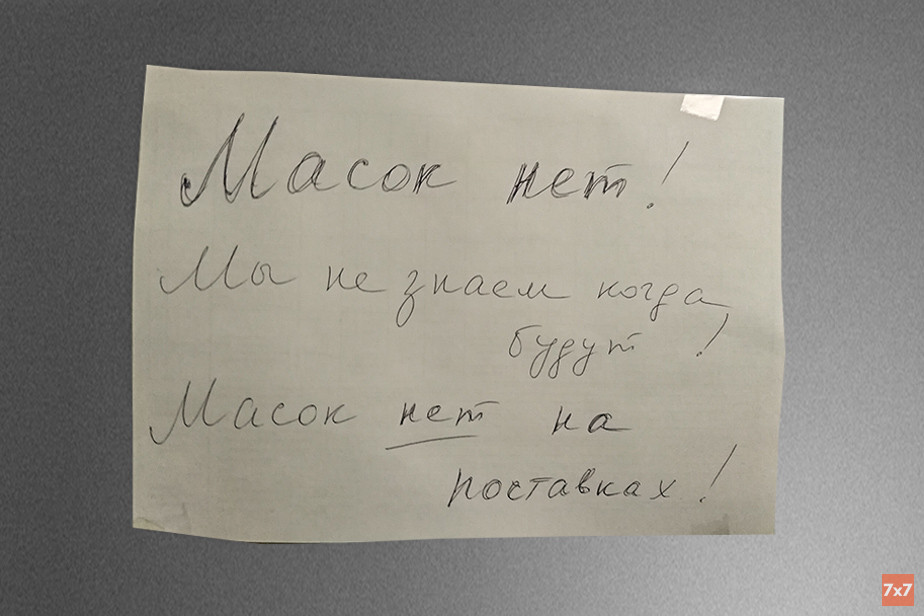 Масок нет!
Мы не знаем когда
будут!
Масок нет на
поставках!
7x7